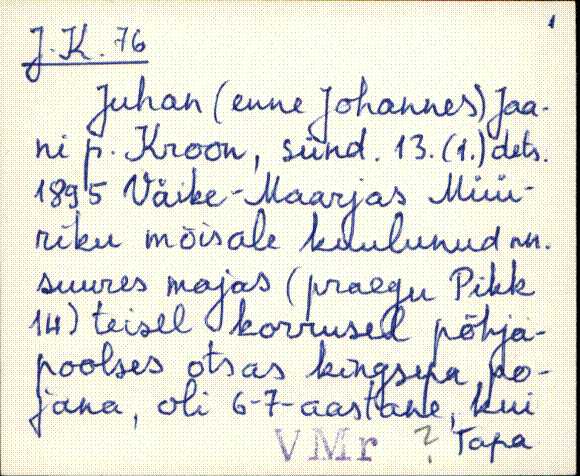 1
J.K. 76
Juhan (enne Johannes) Jaa-
ni p. Kroon, sünd. 13.(1.) dets.
1895 Väike-Maarjas Müü-
riku mõisale kuulunud nn.
suures majas (praegu Pikk
14) teisel korrusel põhja-
poolses otsas kingsepa po-
jana, oli 6-7-aastane, kui
VMr ? Tapa